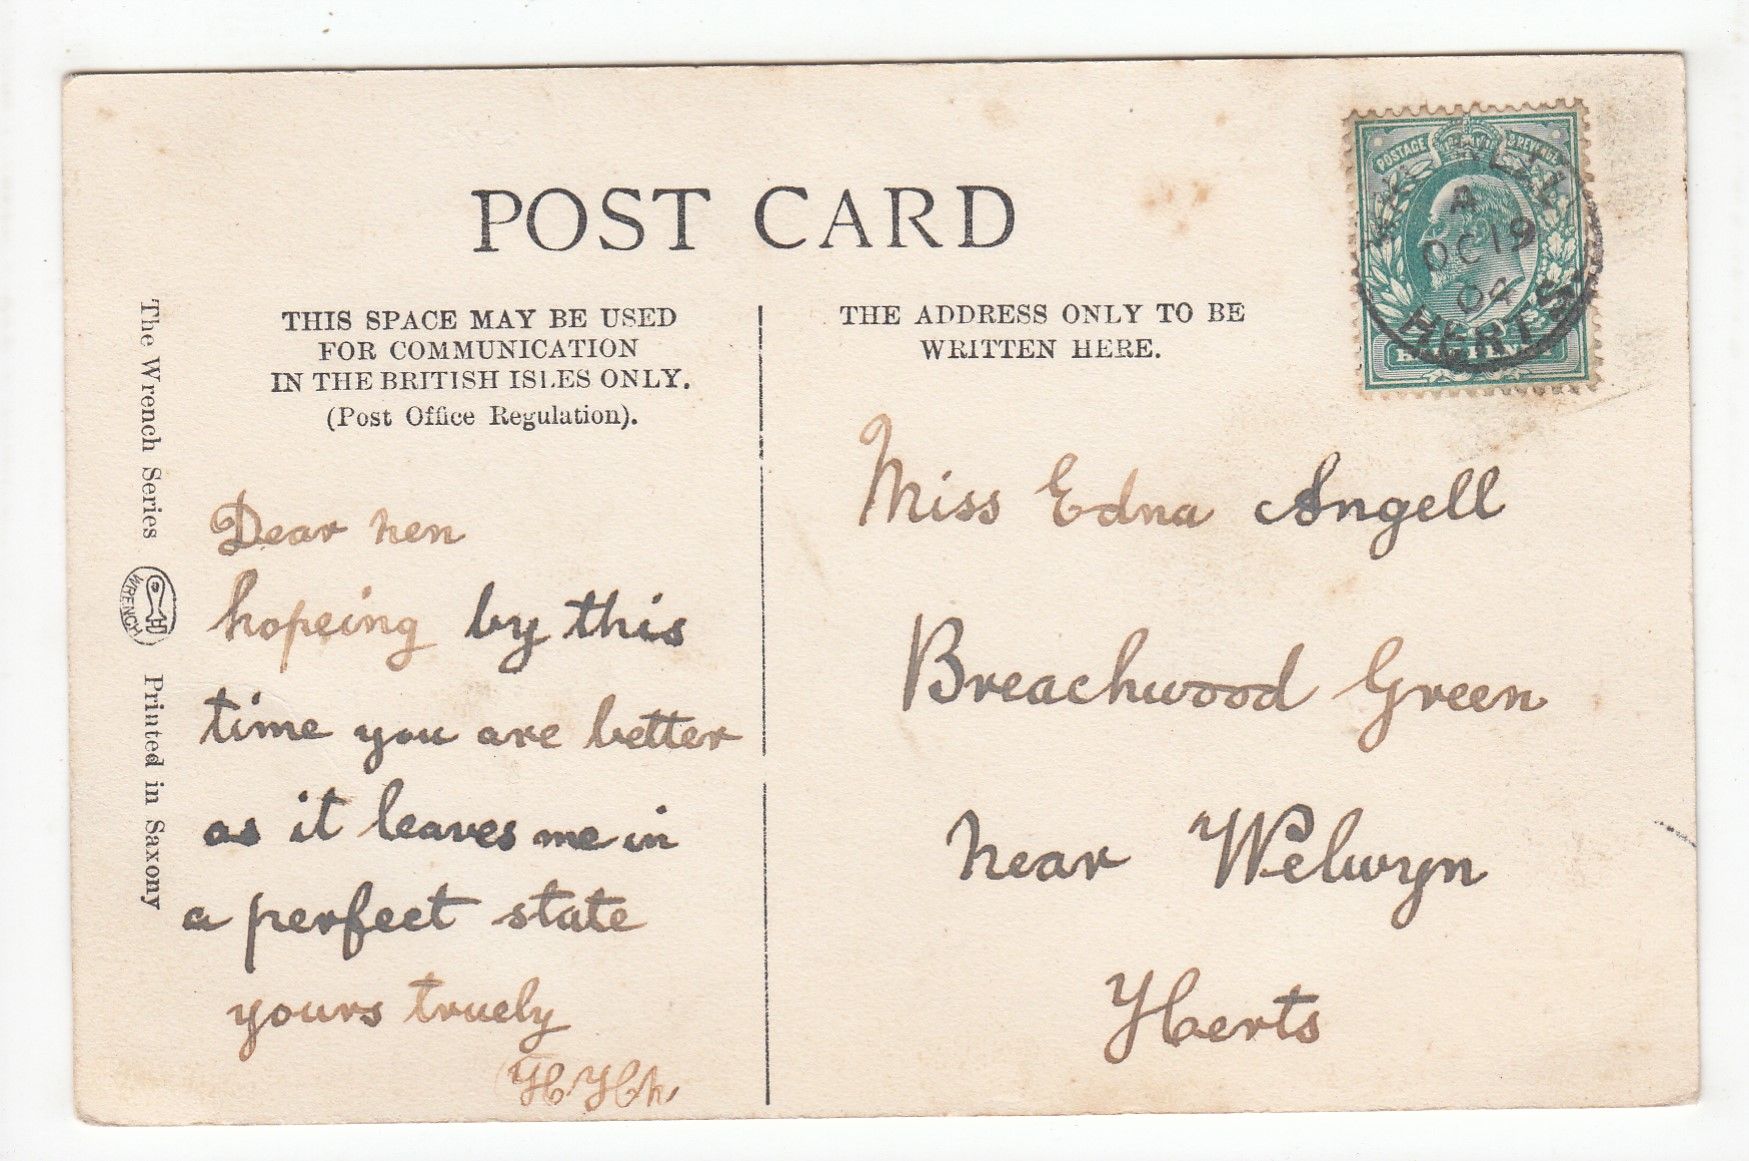 POST CARD
THIS SPACE MAY BE USED
FOR COMMUNICATION
IN THE BRITISH ISLES ONLY.
(Post Office Regulation).
THE ADDRESS ONLY TO BE
WRITTEN HERE.
The Wrench Series
WRENCH
Printed in Saxony
POSTAGE & REVENUE
A
OC 19
04
HERTS
Dear hen
hopeing by this
time you are better
as it leaves me in
a perfect state
yours truely
Miss Edna Angell
Breachwood Green
near Welwyn
Herts